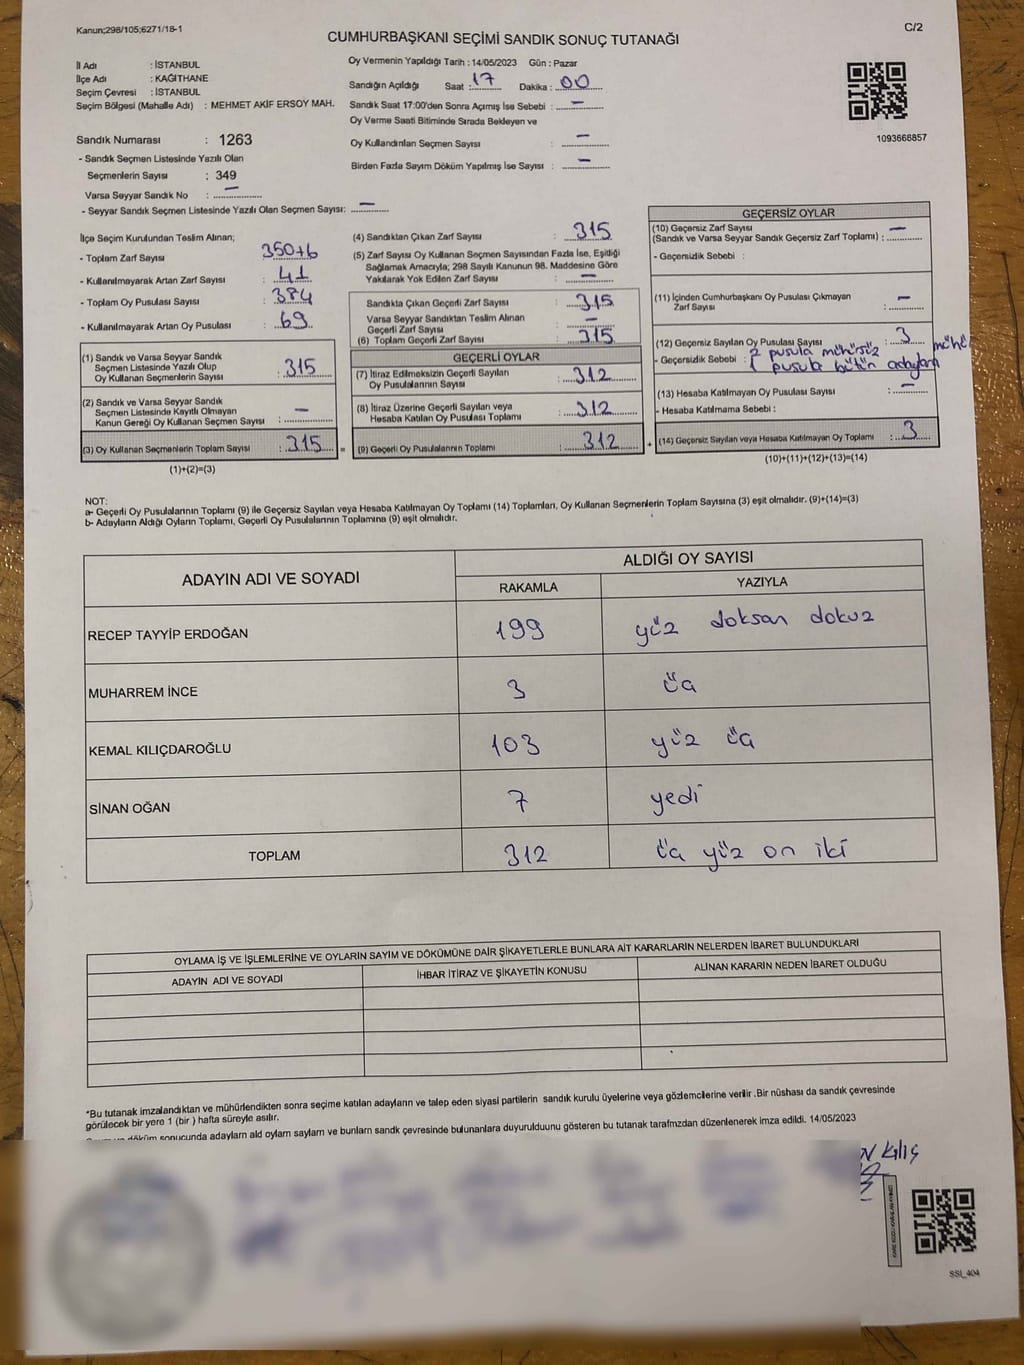 Kanun;298/105;6271/18-1
C/2
CUMHURBAŞKANI SEÇİMİ SANDIK SONUÇ TUTANAĞI
İl Adı : İSTANBUL
İlçe Adı : KAĞITHANE
Seçim Çevresi : İSTANBUL
Seçim Bölgesi (Mahalle Adı) : MEHMET AKİF ERSOY MAH.
Sandık Numarası : 1263
- Sandık Seçmen Listesinde Yazılı Olan
Seçmenlerin Sayısı : 349
Varsa Seyyar Sandık No : –
- Seyyar Sandık Seçmen Listesinde Yazılı Olan Seçmen Sayısı: –
Oy Vermenin Yapıldığı Tarih : 14/05/2023 Gün : Pazar
Sandığın Açıldığı Saat : 17 Dakika : 00
Sandık Saat 17:00'den Sonra Açımış İse Sebebi : –
Oy Verme Saati Bitiminde Sırada Bekleyen ve
Oy Kullandırılan Seçmen Sayısı : –
Birden Fazla Sayım Döküm Yapılmış İse Sayısı : –
1093668857
İlçe Seçim Kurulundan Teslim Alınan;
- Toplam Zarf Sayısı : 350+6
- Kullanılmayarak Artan Zarf Sayısı : 41
- Toplam Oy Pusulası Sayısı : 384
- Kullanılmayarak Artan Oy Pusulası : 69
(1) Sandık ve Varsa Seyyar Sandık
Seçmen Listesinde Yazılı Olup
Oy Kullanan Seçmenlerin Sayısı : 315
(2) Sandık ve Varsa Seyyar Sandık
Seçmen Listesinde Kayıtlı Olmayan
Kanun Gereği Oy Kullanan Seçmen Sayısı : –
(3) Oy Kullanan Seçmenlerin Toplam Sayısı : 315 =
(1)+(2)=(3)
(4) Sandıktan Çıkan Zarf Sayısı : 315
(5) Zarf Sayısı Oy Kullanan Seçmen Sayısından Fazla İse, Eşitliği
Sağlamak Amacıyla; 298 Sayılı Kanunun 98. Maddesine Göre
Yakılarak Yok Edilen Zarf Sayısı : –
Sandıkta Çıkan Geçerli Zarf Sayısı : 315
Varsa Seyyar Sandıktan Teslim Alınan
Geçerli Zarf Sayısı : –
(6) Toplam Geçerli Zarf Sayısı : 315
GEÇERLİ OYLAR
(7) İtiraz Edilmeksizin Geçerli Sayılan
Oy Pusulalarının Sayısı : 312
(8) İtiraz Üzerine Geçerli Sayılan veya
Hesaba Katılan Oy Pusulası Toplamı : 312
(9) Geçerli Oy Pusulalarının Toplamı : 312 +
GEÇERSİZ OYLAR
(10) Geçersiz Zarf Sayısı
(Sandık ve Varsa Seyyar Sandık Geçersiz Zarf Toplamı) : –
- Geçersizlik Sebebi :
(11) İçinden Cumhurbaşkanı Oy Pusulası Çıkmayan
Zarf Sayısı : –
(12) Geçersiz Sayılan Oy Pusulası Sayısı : 3
- Geçersizlik Sebebi : 2 pusula mühürsüz
1 pusula bütün adaylara
(13) Hesaba Katılmayan Oy Pusulası Sayısı : –
- Hesaba Katılmama Sebebi :
(14) Geçersiz Sayılan veya Hesaba Katılmayan Oy Toplamı : 3
(10)+(11)+(12)+(13)=(14)
NOT:
a- Geçerli Oy Pusulalarının Toplamı (9) ile Geçersiz Sayılan veya Hesaba Katılmayan Oy Toplamı (14) Toplamları, Oy Kullanan Seçmenlerin Toplam Sayısına (3) eşit olmalıdır. (9)+(14)=(3)
b- Adayların Aldığı Oyların Toplamı, Geçerli Oy Pusulalarının Toplamına (9) eşit olmalıdır.
ADAYIN ADI VE SOYADI
ALDIĞI OY SAYISI
RAKAMLA YAZIYLA
RECEP TAYYİP ERDOĞAN 199 yüz doksan dokuz
MUHARREM İNCE 3 üç
KEMAL KILIÇDAROĞLU 103 yüz üç
SİNAN OĞAN 7 yedi
TOPLAM 312 üç yüz on iki
OYLAMA İŞ VE İŞLEMLERİNE VE OYLARIN SAYIM VE DÖKÜMÜNE DAİR ŞİKAYETLERLE BUNLARA AİT KARARLARIN NELERDEN İBARET BULUNDUKLARI
ADAYIN ADI VE SOYADI İHBAR İTİRAZ VE ŞİKAYETİN KONUSU ALINAN KARARIN NEDEN İBARET OLDUĞU
*Bu tutanak imzalandıktan ve mühürlendikten sonra seçime katılan adayların ve talep eden siyasi partilerin sandık kurulu üyelerine veya gözlemcilerine verilir .Bir nüshası da sandık çevresinde
görülecek bir yere 1 (bir ) hafta süreyle asılır.
döküm sonucunda adayların ald oyların sayların ve bunların sandk çevresinde bulunanlara duyurulduunu gösteren bu tutanak tarafmzdan düzenlenerek imza edildi. 14/05/2023
Kılıç
SSI_404